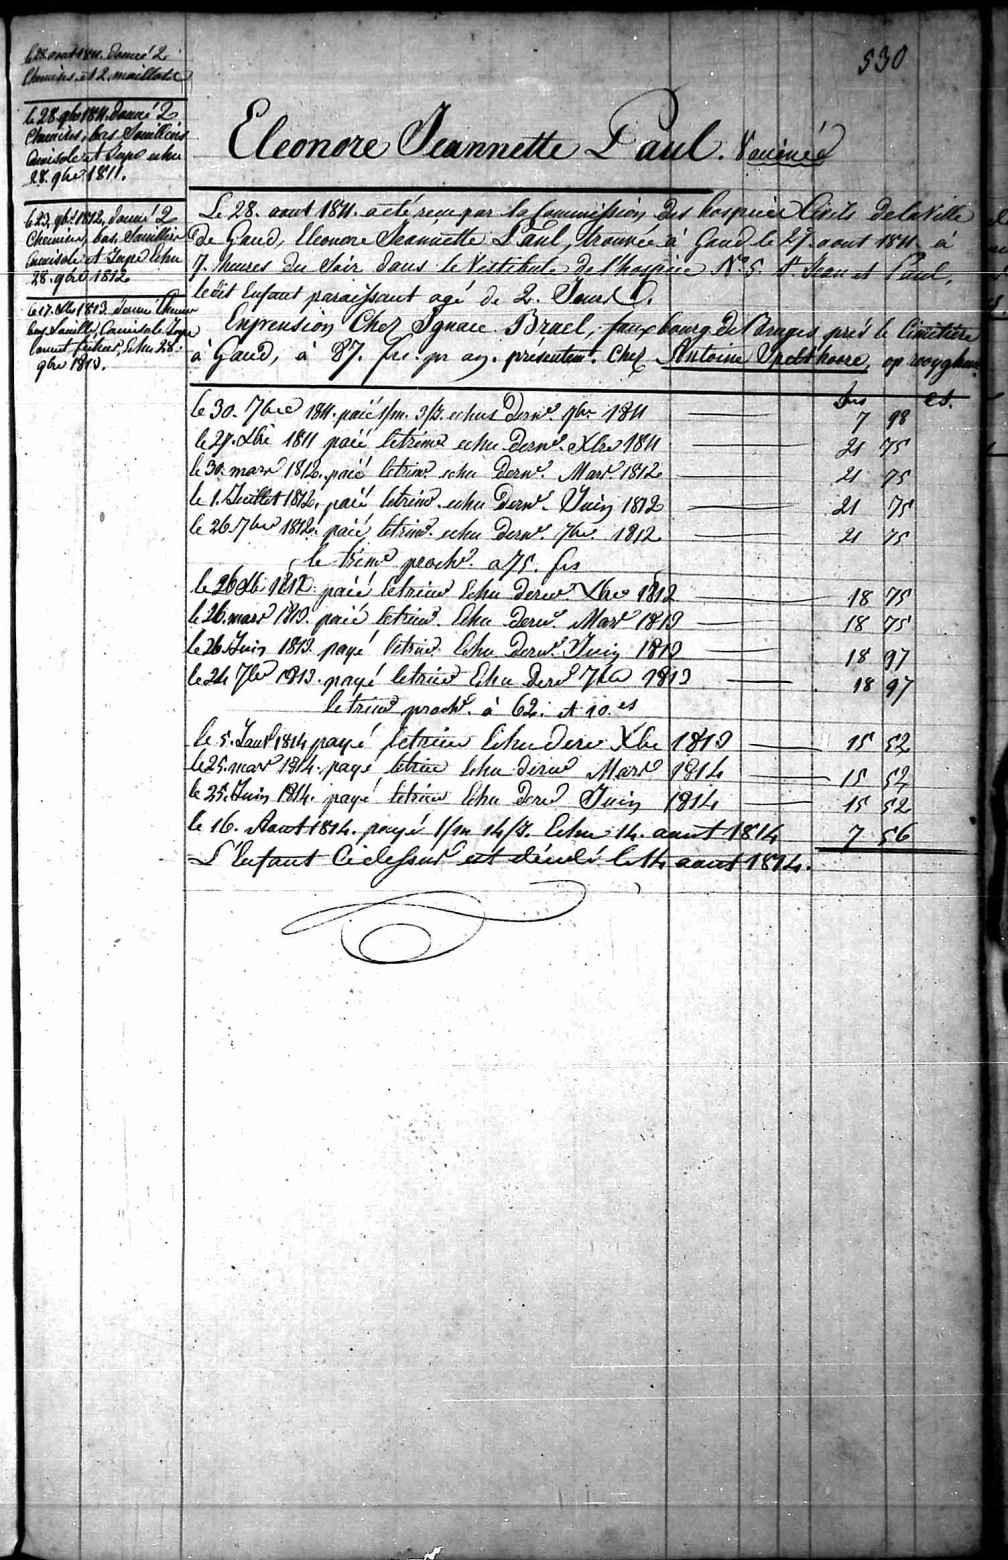 530
le 28 aout 1811. donné 2
Chemises et 2 maillots
le 28 gbre 1811. donné 2
Chemises, bas Souilliers
Camisole et Jupe echu
28. gbre 1811.
le 23. gbre 1812, donné 2
Chemises, bas, Souilliers
Camisole et Jupe Echu
28. gbre 1812
le 17. Xbre 1813 donné Chemise
bas Souilliers, Camisole Jupe
Echu 28.
gbre 1813.
Eleonore Jeannette Paul. Vaccinée
Le 28. aout 1811. a eté reçu par la Commission des hospices Civils de la Ville
de Gand, Eleonore Jeannette Paul, trouvée à Gand le 27. aout 1811 à
7. heures du Soir dans le Vestibule de l'hospice N.º 5. St Jean et Paul,
le dit Enfant paraissant agé de 2. Jours.
En pension Chez Ignace Brael, faux bourg de Bruges, prés le Cimetiere
à Gand, à 87. frc. pr an. présentemt. Chez Antoine Spelthoore, op
frs cs.
le 30. 7bre 1811. paié 1/m. 3/J. echus dernr. 7bre 1811 7 98
le 27. Xbre 1811 paié letrimr echu dernr. Xbre 1811 21 75
le 30. mars 1812. paié letrimr. echu dernr. Mars 1812 21 75
le 1. Juillet 1812. paié letrimr. echu dernr. Juin 1812 21 75
le 26. 7bre 1812. paié letrimr. echu dernr. 7bre 1812 21 75
le trimr prochn. a 75. frs
le 26 Xb. 1812. paié letrimr Echu dernr. Xbre 1812 18 75
le 26. mars 1813. paié letrimr. Echu dernr. Mars 1813 18 75
le 26 Juin 1813. payé letrimr. Echu dernr. Juin 1813 18 97
le 24 7bre 1813. payé letrimr Echu dernr 7bre 1813 18 97
le trimr prochn. à 62. et 10. cs
le 5. Janvr 1814 payé letrimr Echu dernr Xbre 1813 15 52
le 25. mars 1814. payé letrimr Echu dernr Mars 1814 15 52
le 25. Juin 1814. payé letrimr Echu dernr Juin 1814 15 52
le 16. Aout 1814. payé 1/m 14/J. Echu 14. aout 1814 7 56
L'Enfant Cidessus est décédé le 14 aout 1814.